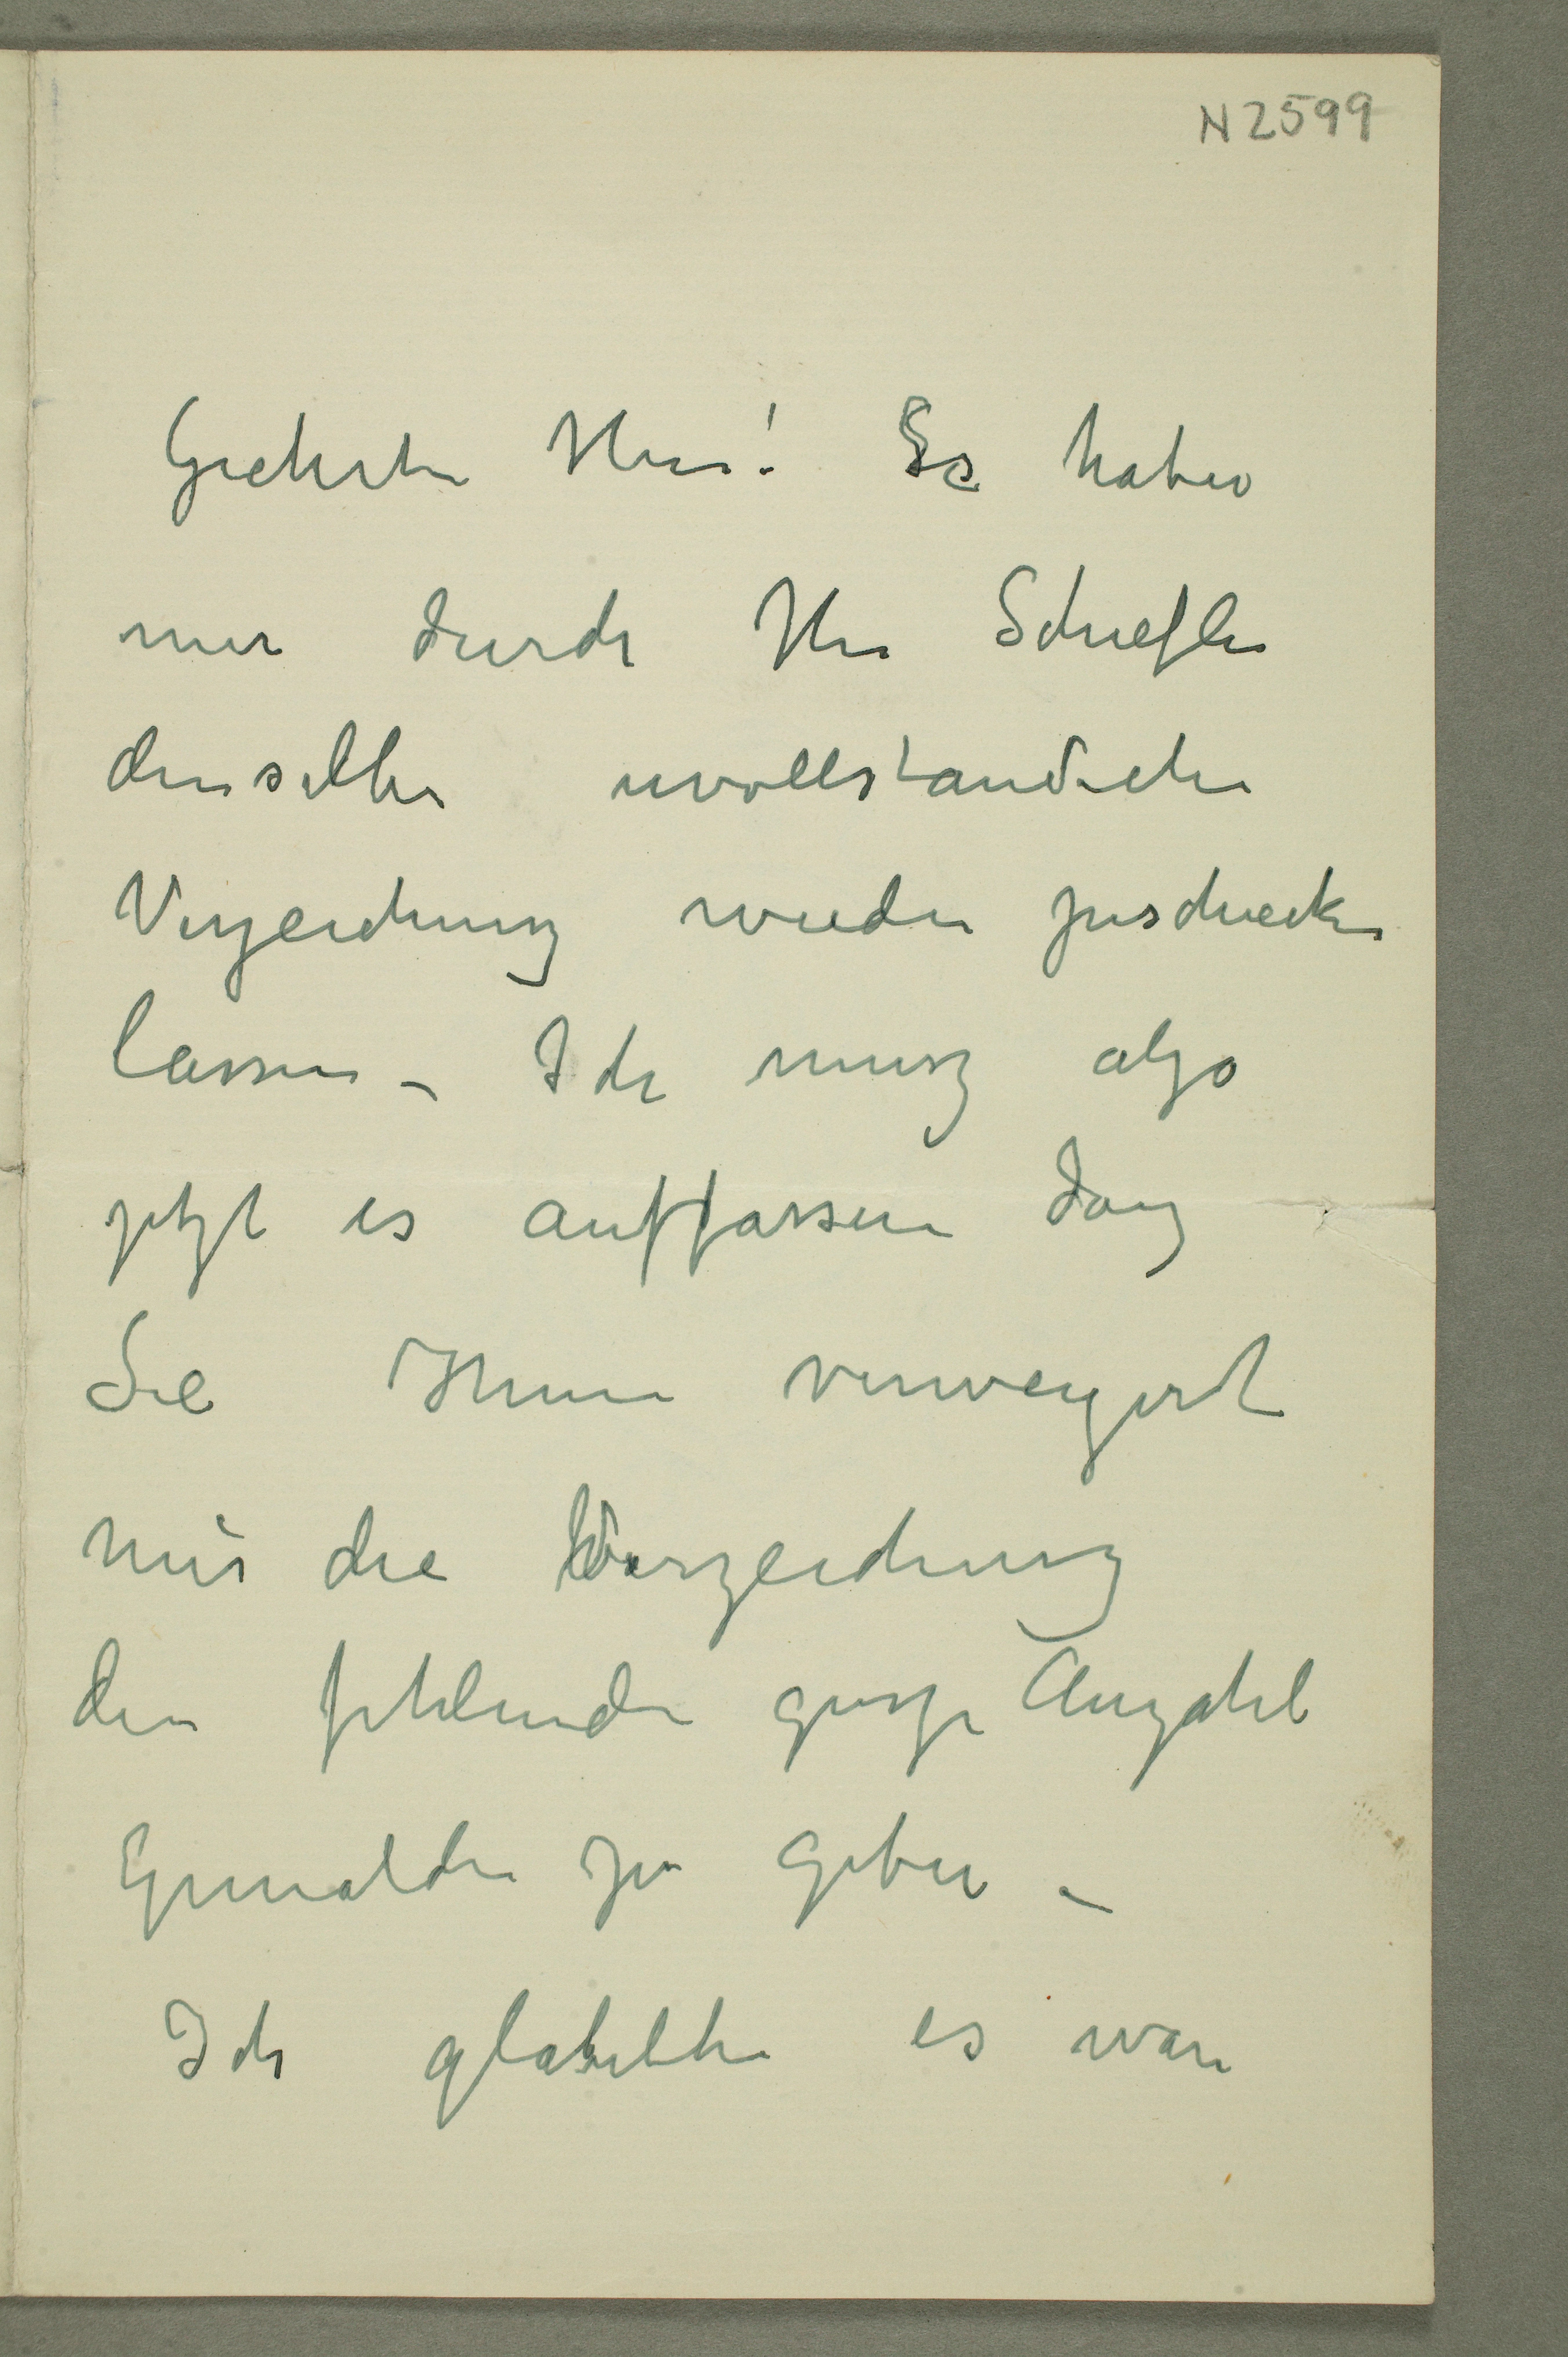 N 2599
Geehrter Herr! Es haben
mir durch Herr Schiefler
denselben uvollständichen
Verzeichnusz wieder zuschicken
lassen – Ich musz also
jetzt es auffassen dasz
Sie Ihnen verweigert
mir die Verzeichnusz
der fehlenden grosze Anzahl
Gemälden zu geben –
Ich glaubthe es war